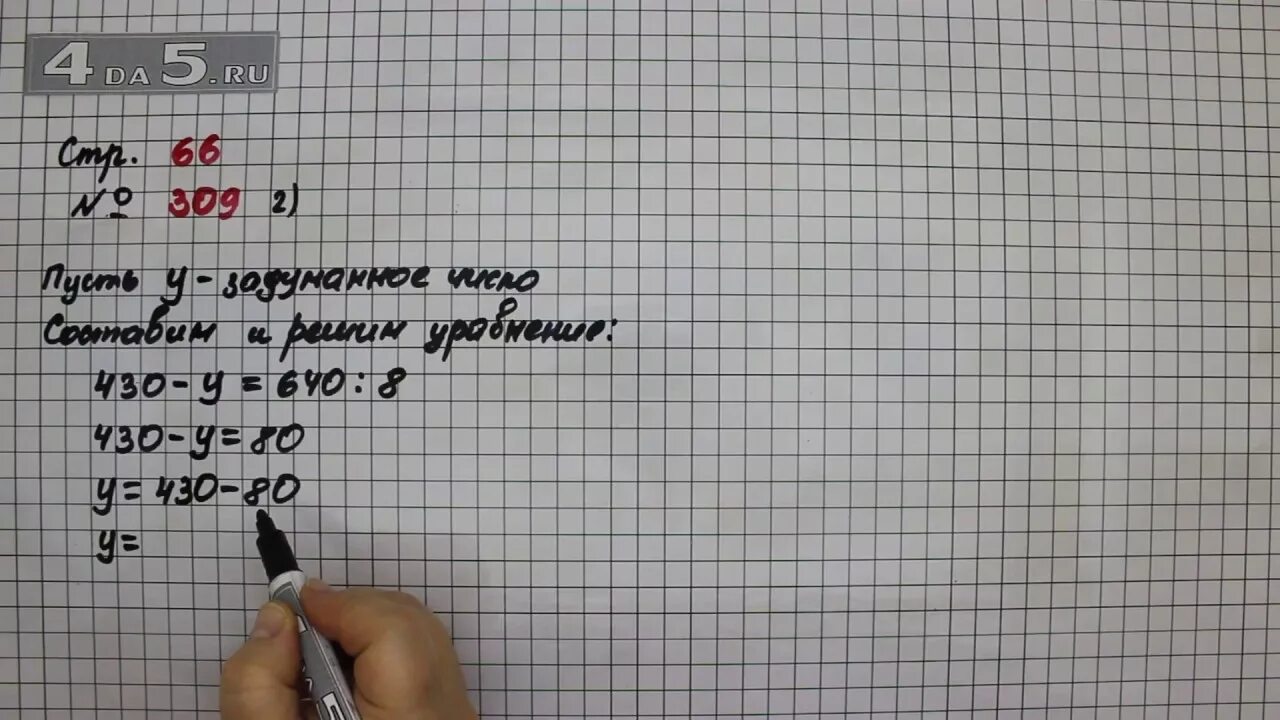 4DA5.RU
Стр. 66
№ 309 2)
Пусть у - задуманное число
Составим и решим уравнение:
430 - у = 640 : 8
430 - у = 80
у = 430 - 80
у =